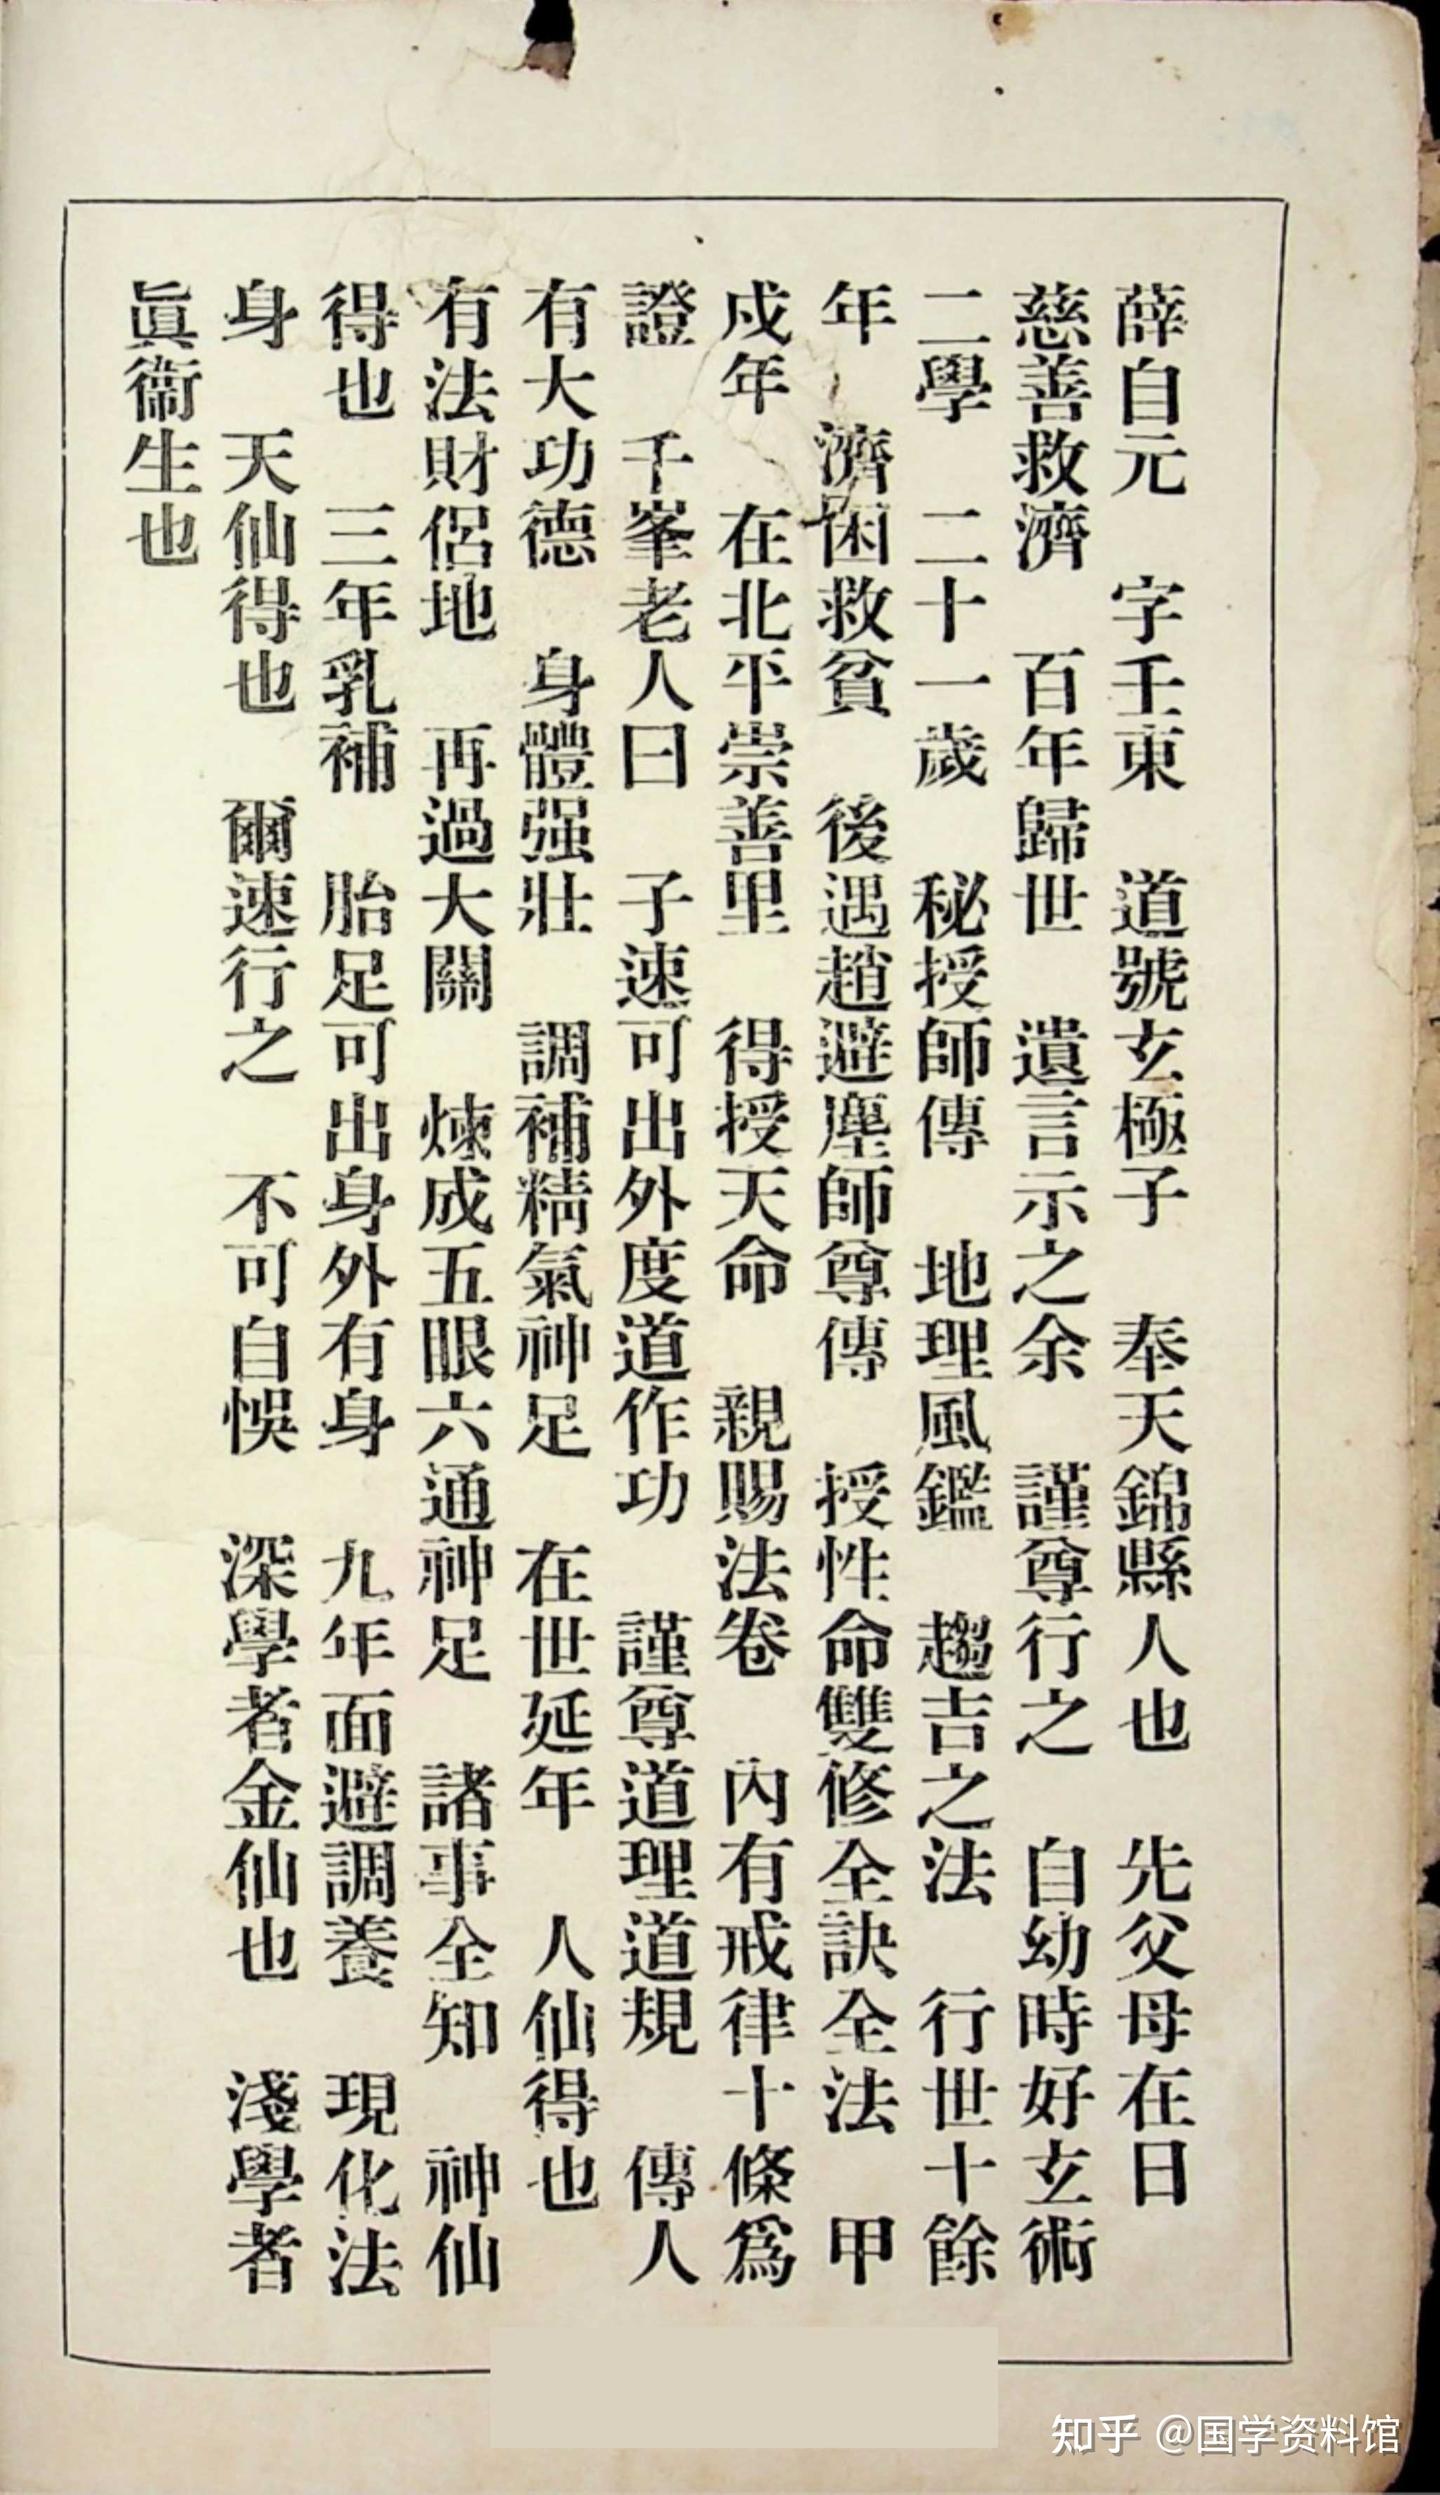 薛自元　字壬東　道號玄極子　奉天錦縣人也　先父母在日
慈善救濟　百年歸世　遺言示之余　謹尊行之　自幼時好玄術
二學　二十一歲　秘授師傳　地理風鑑　趨吉之法　行世十餘
年　濟困救貧　後遇趙避塵師尊傳　授性命雙修全訣全法　甲
戍年　在北平崇善里　得授天命　親賜法卷　內有戒律十條爲
證　千峯老人曰　子速可出外度道作功　謹尊道理道規　傳人
有大功德　身體强壯　調補精氣神足　在世延年　人仙得也
有法財侶地　再過大關　煉成五眼六通神足　諸事全知　神仙
得也　三年乳補　胎足可出身外有身　九年面避調養　現化法
身　天仙得也　爾速行之　不可自悞　深學者金仙也　淺學者
眞衞生也
知乎 @国学资料馆